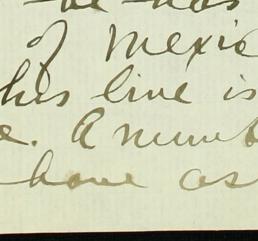 of Mexic
his line is
e. A numb
have as